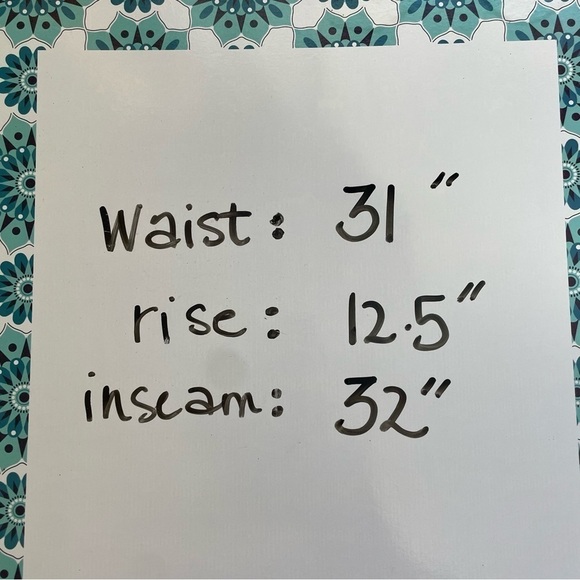 Waist: 31"
rise: 12.5"
inseam: 32"